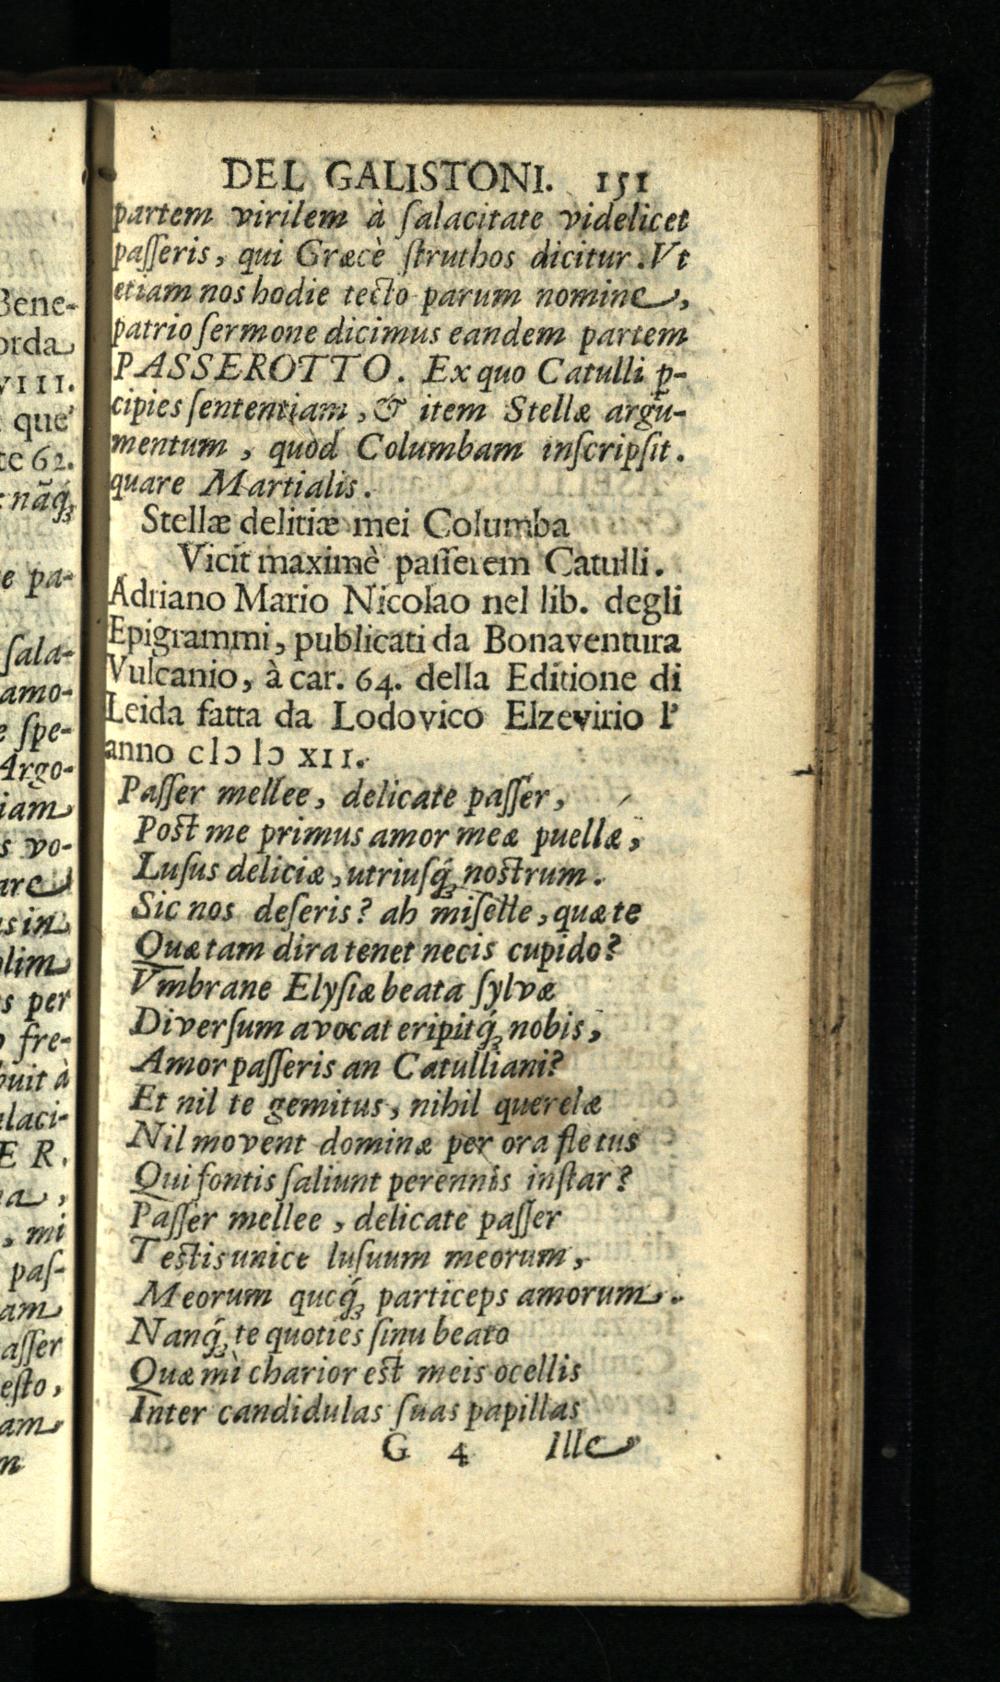 DEL GALISTONI. 151
partem virilem à ſalacitate videlicet
paſſeris, qui Græcè ſtruthos dicitur. Vt
etiam nos hodie tecto parum nomine,
patrio ſermone dicimus eandem partem
PASSEROTTO. Ex quo Catulli p-
cipies ſententiam, & item Stellæ argu-
mentum, quòd Columbam inſcripſit.
quare Martialis.
Stellæ delitiæ mei Columba
Vicit maximè paſſerem Catulli.
Adriano Mario Nicolao nel lib. degli
Epigrammi, publicati da Bonaventura
Vulcanio, à car. 64. della Editione di
Leida fatta da Lodovico Elzevirio l'
anno cIↄ Iↄ XII.
Paſſer mellee, delicate paſſer,
Post me primus amor meæ puellæ,
Luſus deliciæ, utriuſq́; nostrum.
Sic nos deſeris? ah miſelle, quæ te
Quæ tam dira tenet necis cupido?
Vmbrane Elyſiæ beata ſylvæ
Diverſum avocat eripitq́; nobis,
Amor paſſeris an Catulliani?
Et nil te gemitus, nihil querelæ
Nil movent dominæ per ora fletus
Qui fontis ſaliunt perennis inſtar?
Paſſer mellee, delicate paſſer
Testis unice luſuum meorum,
Meorum qucq́; particeps amorum.
Nanq́; te quoties ſinu beato
Quæ mì charior est meis ocellis
Inter candidulas ſuas papillas
G 4 Ille
Bene-
orda
VIII.
que'
te 62.
nãq́;
e pa-
ſala-
amo-
e ſpe-
Argo-
iam
s vo-
are
us in
olim
s per
o fre-
buit à
alaci-
ER.
, mi
paſ-
am
aſſer
eſto,
am